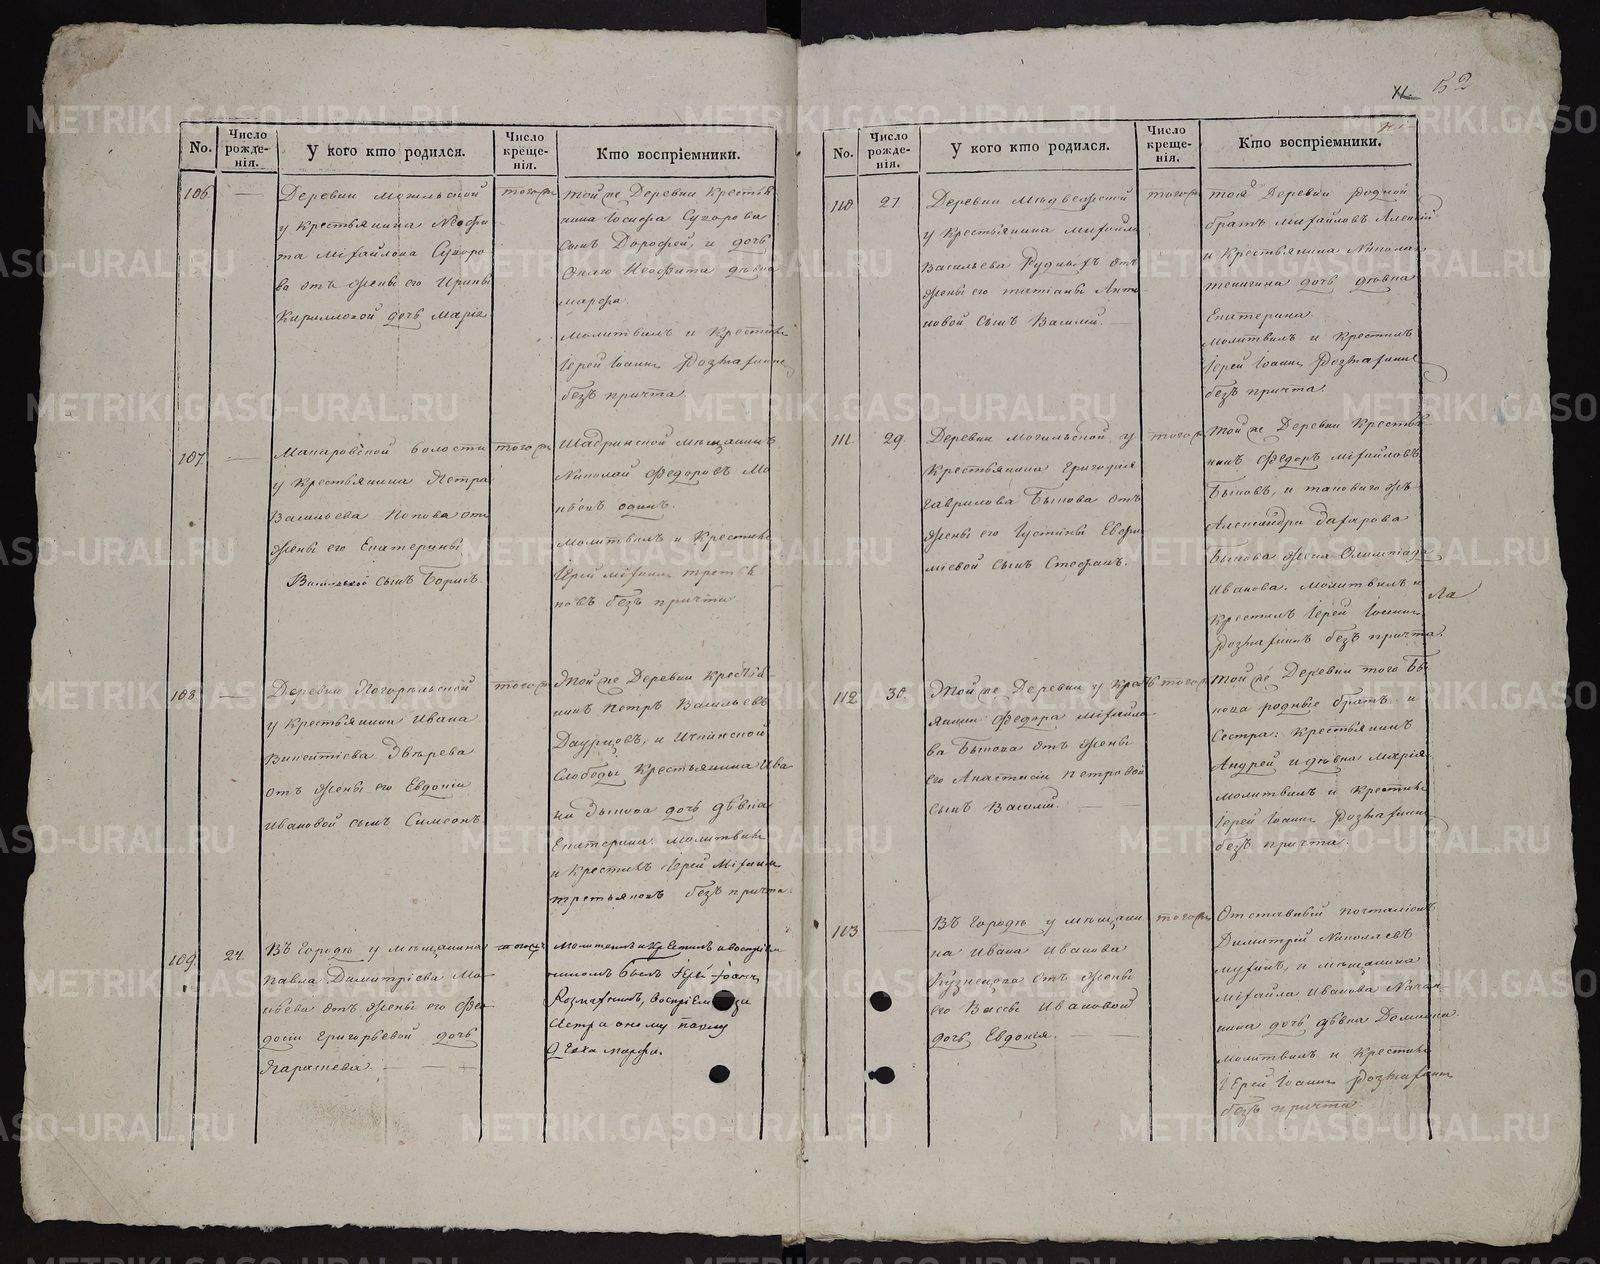 52
No.
Число рожде-нія.
У кого кто родился.
Число креще-нія.
Кто воспріемники.
106
Деревни Могильской
у крестьянина Неофи
та Міхайлова Сухоро
ва отъ жены его Ирины
Кириловой дочь Марія
тогоже
той же Деревни крестья
нина Іосифа Сухорова
сынъ Дорофей, и дочь
онаго Неофита дѣвка
марфа.
молитвилъ и крестилъ
Іерей Іоаннъ
безъ причта
107.
Макаровской волости
у крестьянина Петра
Васильева Попова отъ
жены его Екатерины
Васильевой сынъ Борисъ
тогоже
Шадринской мѣщанинъ
Николай Федоровъ Мо
кѣевъ одинъ.
молитвилъ и крестилъ
Іерей Міхаилъ третья
ковъ безъ причта
108.
Деревни Погорѣльской
у крестьянина Ивана
Викентіева Звѣрева
отъ жены его Евдокіи
Ивановой сынъ Симеонъ
тогоже
Той же Деревни крестья-
нинъ Петръ Васильевъ
Даурцовъ, и Ичкинской
Слободы крестьянина Ива
на Быкова дочь дѣвка
Екатерина. молитвилъ
и крестилъ Іерей Міхаилъ
третьяковъ безъ причта.
109.
24.
Въ Городѣ у мѣщанина
Павла Димитріева Мо-
кѣева отъ жены его Фео-
досіи Григорьевой дочь
Параскева.
тогоже
молитвилъ и крестилъ а воспріем
никомъ былъ Іерей Іоаннъ
воспріемница
сестра оному павлу
дѣвка марфа.
No.
Число рожде-нія.
У кого кто родился.
Число креще-нія.
Кто воспріемники.
110
27
Деревни Мѣдвежской
у крестьянина михайла
Васильева Рудныхъ отъ
жены его татіаны Анти
повой сынъ Василій.
тогоже
той Деревни родной
братъ михайловъ Алексій
и крестьянина Никола
дочь дѣвка
Екатерина.
молитвилъ и крестилъ
Іерей Іоаннъ
безъ причта
111.
29.
Деревни Могильской у
крестьянина Григорія
Гаврилова Быкова отъ
жены его Іустины Евфи
міевой сынъ Стефанъ.
тогоже
той же Деревни крестья
нинъ Федоръ Міхайловъ
Быковъ, и таковаго жъ
Александра Захарова
Быкова жена Олимпіада
Иванова. молитвилъ и
крестилъ Іерей Іоаннъ
безъ причта.
112
30.
Той же Деревни у Кресть
янина Федора Міхайло
ва Быкова отъ жены
его Анастасіи Петровой
сынъ Василій.
тогоже
той же Деревни того Бы
кова родные братъ и
Сестра: крестьянинъ
Андрей и дѣвка Марія
молитвилъ и крестилъ
Іерей Іоаннъ
безъ причта.
113
Въ Городѣ у мѣщани
на Ивана Иванова
Кузнецова отъ жены
его Вассы Ивановой
дочь Евдокія.
тогоже
Отставный почталіонъ
Димитрій Николаевъ
и мѣщанина
Міхайла Иванова
дочь дѣвка Домника.
молитвилъ и крестилъ
Іерей Іоаннъ
безъ причта
METRIKI.GASO-URAL.RU